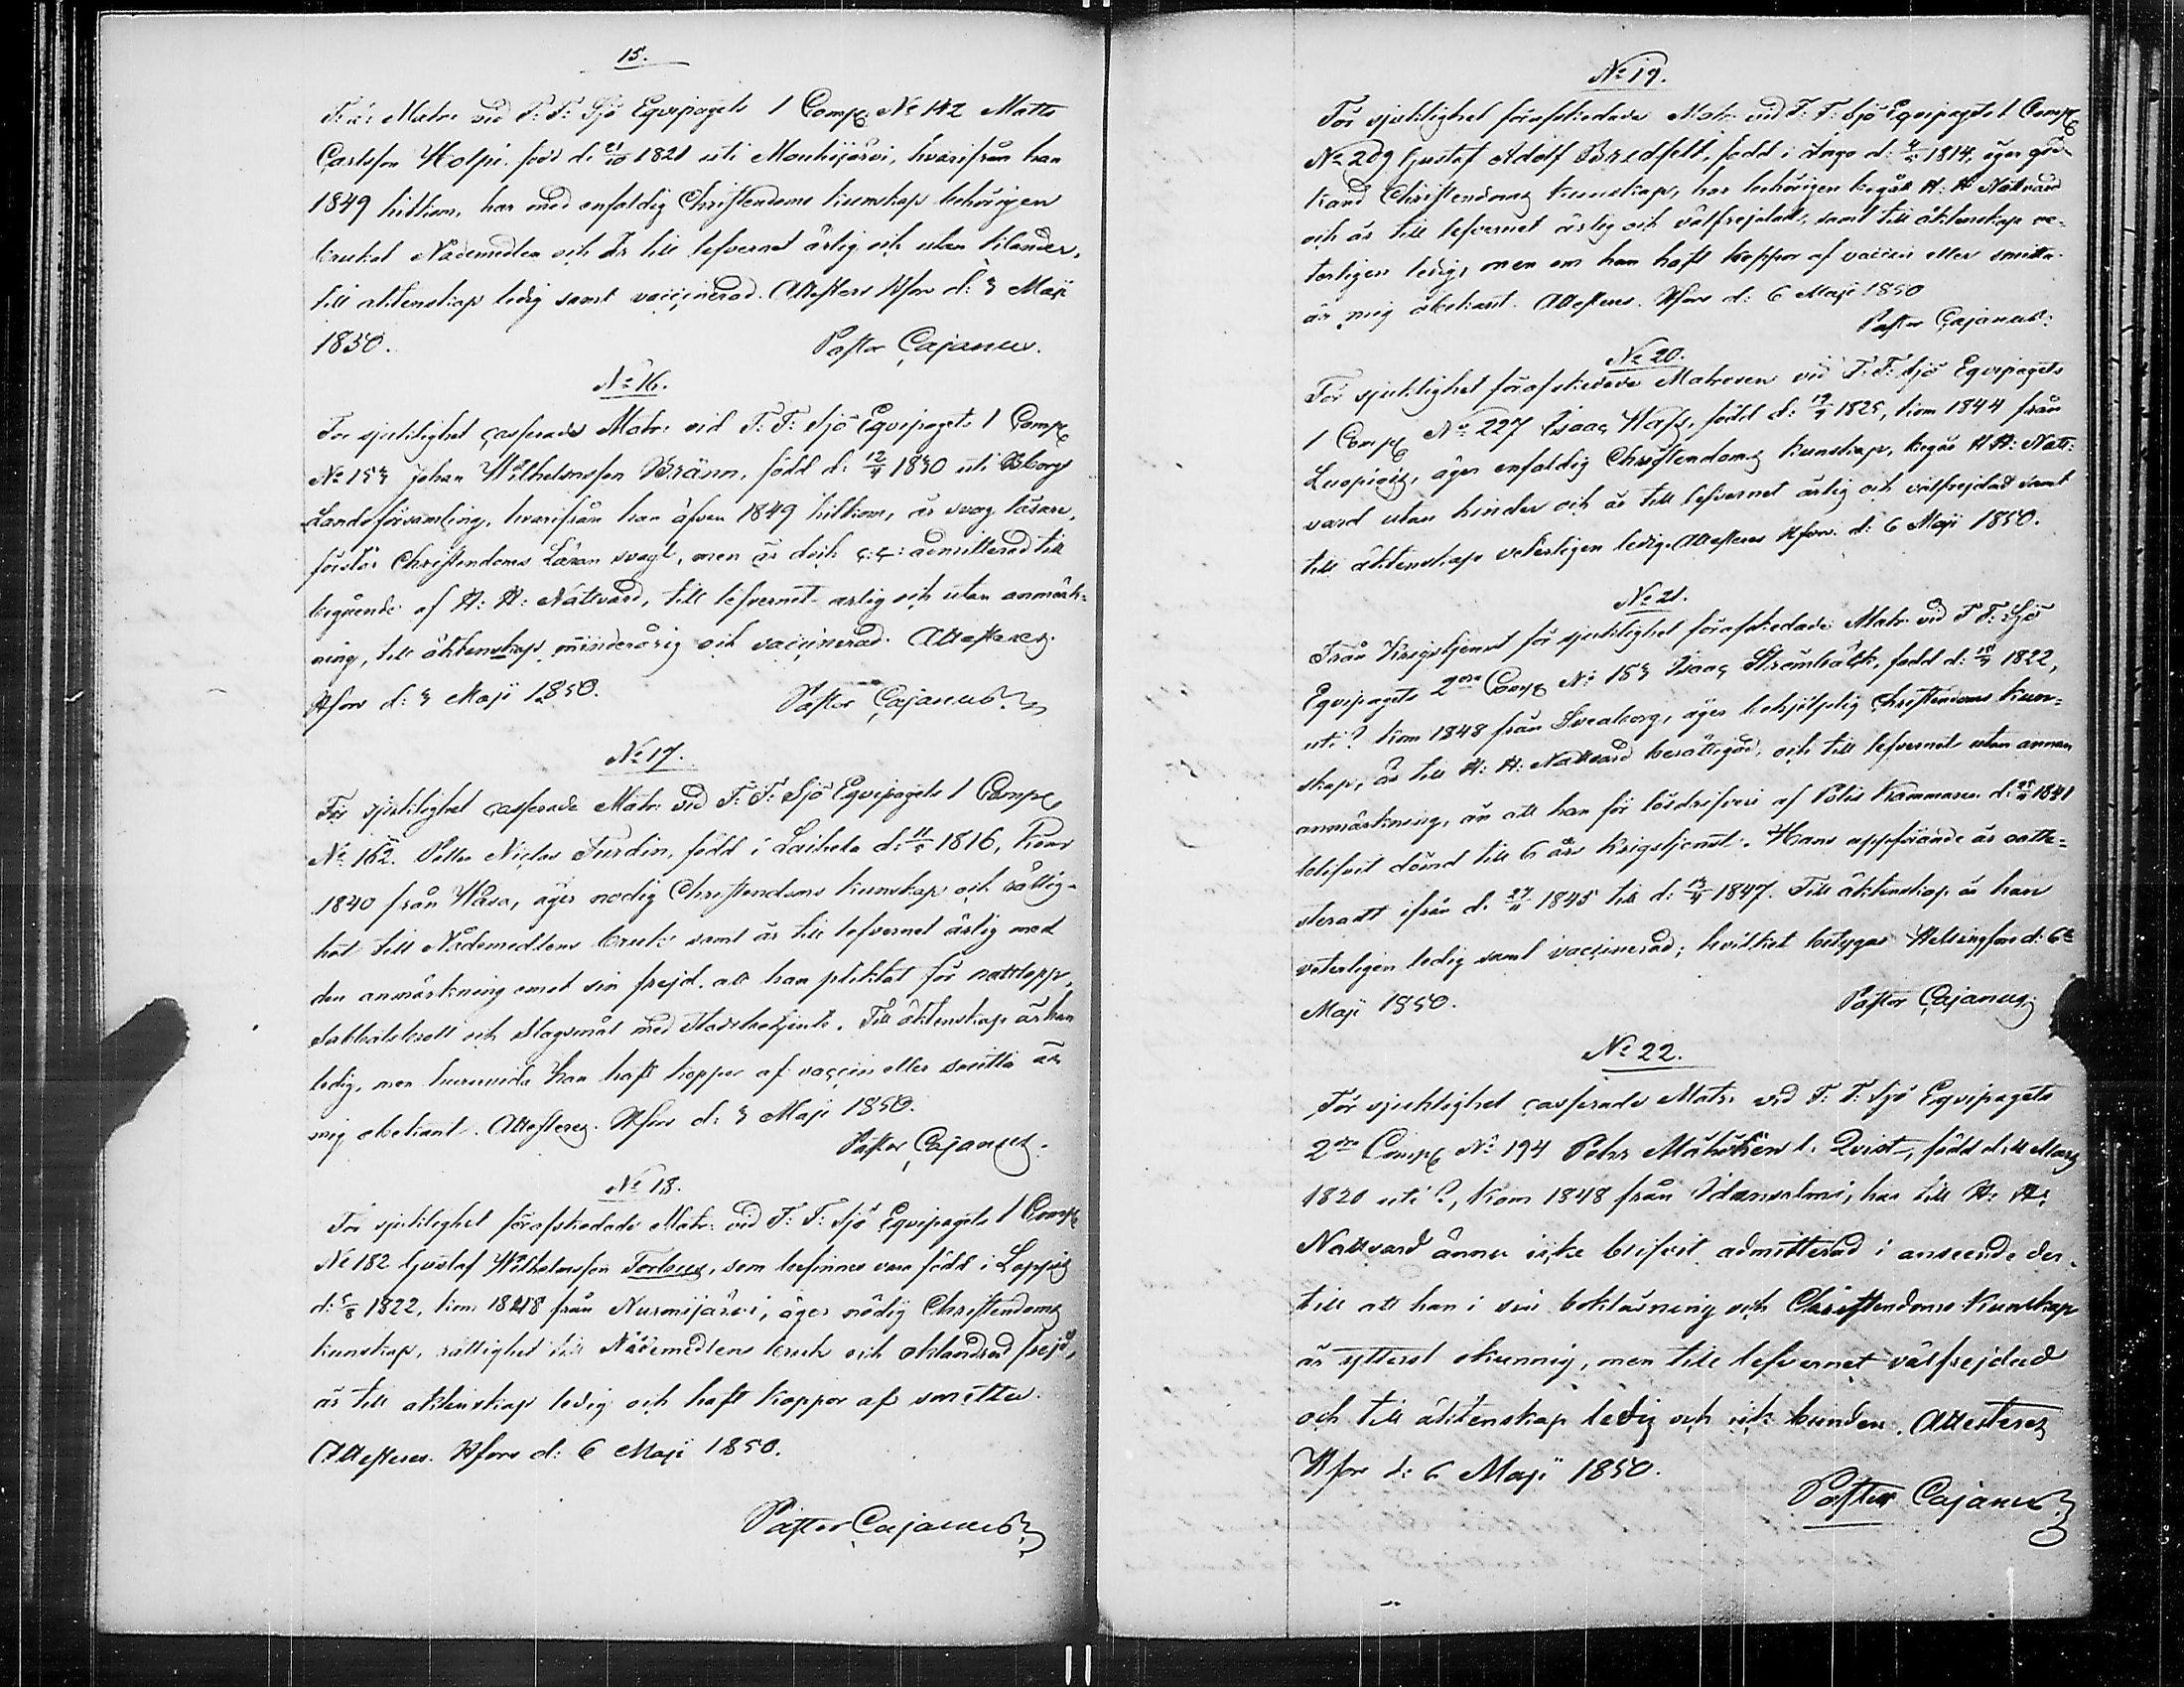 15.
F. d. Matr. vid F: F: Sjö Eqvipagets 1 Comp: No 142 Matts
Carlsson Kolpi, född d. 21/10 1821 uti Mouhijärvi, hvarifrån han
1849 hitkom, har med enfaldig Christendoms kunskap behörigen
brukat Nådemedlen och är till lefvernet ärlig och utan klander,
till äktenskap ledig samt vaccinerad. Attesteras Hfors d: 3 Maji
1850. Pastor Cajanus.
No 16.
För sjuklighet casserade Matr: vid F: F: Sjö Eqvipagets 1 Comp:
No 153 Johan Wilhelmsson Bränn, född d: 12/4 1830 uti Borgå
Landsförsamling, hvarifrån han äfven 1849 hitkom, är svag läsare,
förstår Christendoms Läran svagt, men är dock admitterad till
begående af H: H: Nattvard, till lefvernet ärlig och utan anmärk-
ning, till äktenskap minderårig och vaccinerad. Attesteras
Hfors d: 3 Maji 1850. Pastor Cajanus.
No 17.
För sjuklighet casserade Matr: vid F: F: Sjö Eqvipagets 1 Comp:
No 162. Petter Niclas Furdin, född i Laihela d: 11/5 1816, kom
1840 från Wasa, äger nödig Christendoms kunskap och rättig-
het till Nådemedlens bruk samt är till lefvernet ärlig med
den anmärkning emot sin frejd, att han pliktat för nattlopp,
sabbatsbrott och slagsmål med Stadsbetjente. Till äktenskap är han
ledig, men huruvida han haft koppor af vaccin eller smitta är
mig obekant. Attesteras. Hfors d: 3 Maji 1850.
Pastor Cajanus.
No 18.
För sjuklighet förafskedade Matr: vid F: F: Sjö Eqvipagets 1 Comp:
No 182 Gustaf Wilhelmsson Forteus, som befinnes vara född i Loppis
d: 5/8 1822, kom 1848 från Nurmijärvi, äger nödig Christendoms
kunskap, rättighet till Nådemedlens bruk och oklandrad frejd,
är till äktenskap ledig och haft koppor af smitta.
Attesteras. Hfors d: 6 Maji 1850.
Pastor Cajanus
No 19.
För sjuklighet förafskedade Matr. vid F: F: Sjö Eqvipagets 1 Comp:
No 209 Gustaf Adolf Bredfelt, född i Ingo d: 4/5 1814, äger god-
känd Christendoms kunskap, har behörigen begått H: H: Nattvard
och är till lefvernet ärlig och välfrejdad, samt till äktenskap ve-
terligen ledig, men om han haft koppor af vaccin eller smitta
är mig obekant. Attesteras. Hfors d: 6 Maji 1850
Pastor Cajanus.
No 20.
För sjuklighet förafskedade Matrosen vid F: F: Sjö Eqvipagets
1 Comp: No 227 Isaac Hass, född d: 19/5 1825, kom 1844 från
Kuopio, äger enfaldig Christendoms kunskap, begår H: H: Natt-
vard utan hinder och är till lefvernet ärlig och välfrejdad samt
till äktenskap veterligen ledig. Attesteras Hfors. d: 6 Maji 1850.
No 21.
Från Krigstjenst för sjuklighet förafskedade Matr. vid F: F: Sjö
Eqvipagets 2dra Comp: No 153 Isaac Strömbäck, född d: 15/9 1822,
uti? kom 1848 från Sveaborg, äger behjelplig Christendoms kun-
skap, är till H: H: Nattvard berättigad, och till lefvernet utan annan
anmärkning, än att han för lösdrifveri af Polis Kammaren d: 25/11 1841
blifvit dömd till 6 års krigstjenst. Hans uppförande är oatte-
steradt ifrån d. 27/11 1845 till d: 13/4 1847. Till äktenskap är han
veterligen ledig samt vaccinerad; hvilket betygas Helsingfors d: 6te
Maji 1850. Pastor Cajanus
No 22.
För sjuklighet casserade Matr: vid F: F: Sjö Eqvipagets
2dra Comp: No 194 Pehr Mähönen l. Qvist, född d: 11 Mars
1820 uti?, kom 1848 från Idensalmi, har till H: H:
Nattvard ännu icke blifvit admitterad i anseende der-
till att han i sin bokläsning och Christendoms kunskap
är ytterst okunnig, men till lefvernet välfrejdad
och till äktenskap ledig och ick bunden. Attesteras
Hfors d: 6 Maji 1850.
Pastor Cajanus